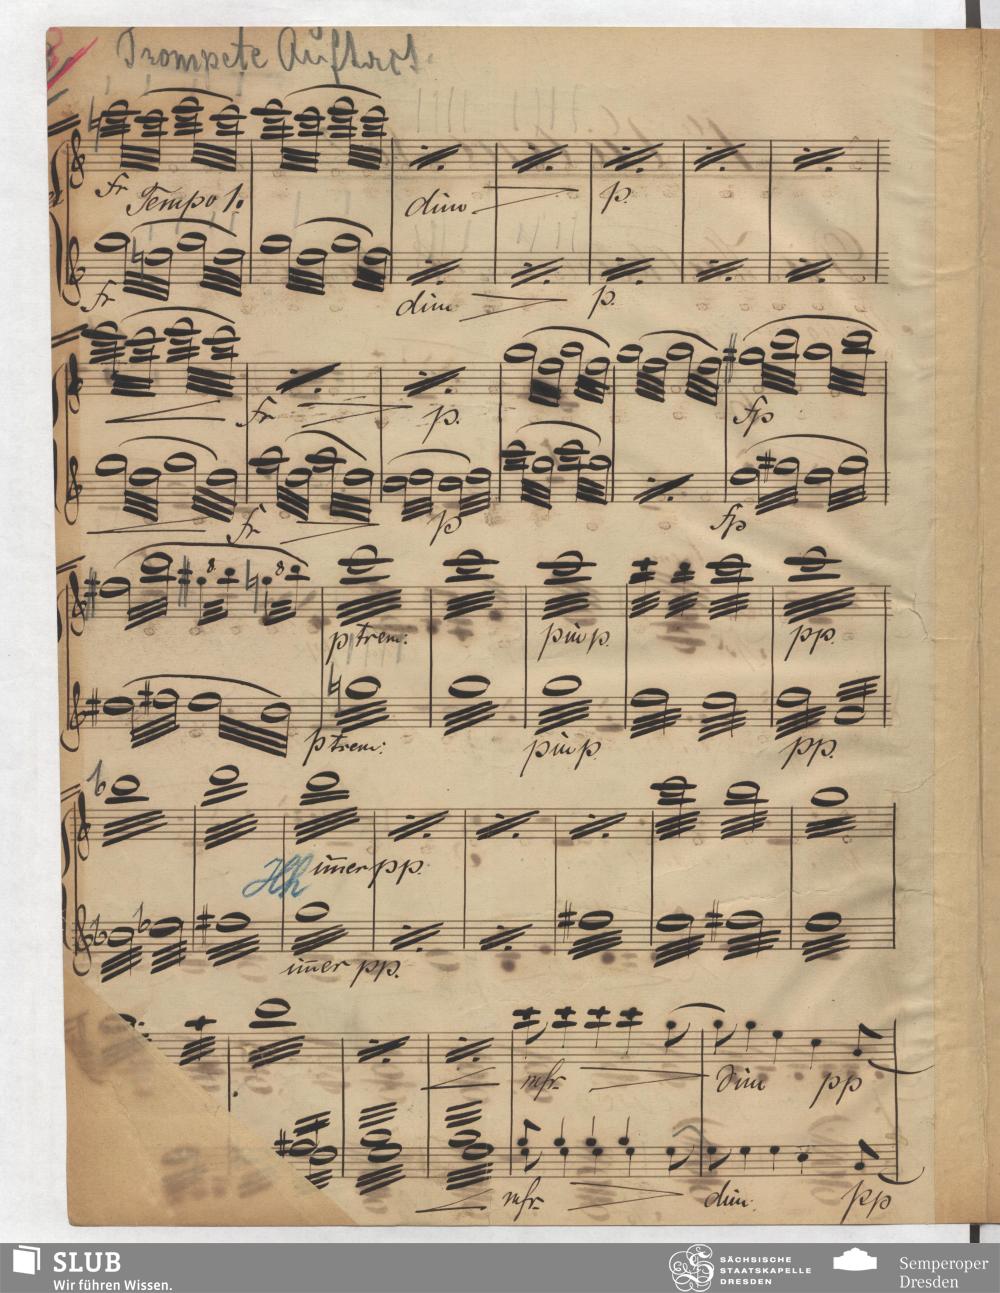 Trompete Auftact.
fr Tempo 1. dim p.
fr dim p.
fr p. fp
fr p fp
p trem: piu p. pp.
p trem: piu p pp.
im̄er pp.
im̄er pp.
mfr dim pp
mfr dim. pp
SLUB
Wir führen Wissen.
SÄCHSISCHE
STAATSKAPELLE
DRESDEN
Semperoper
Dresden